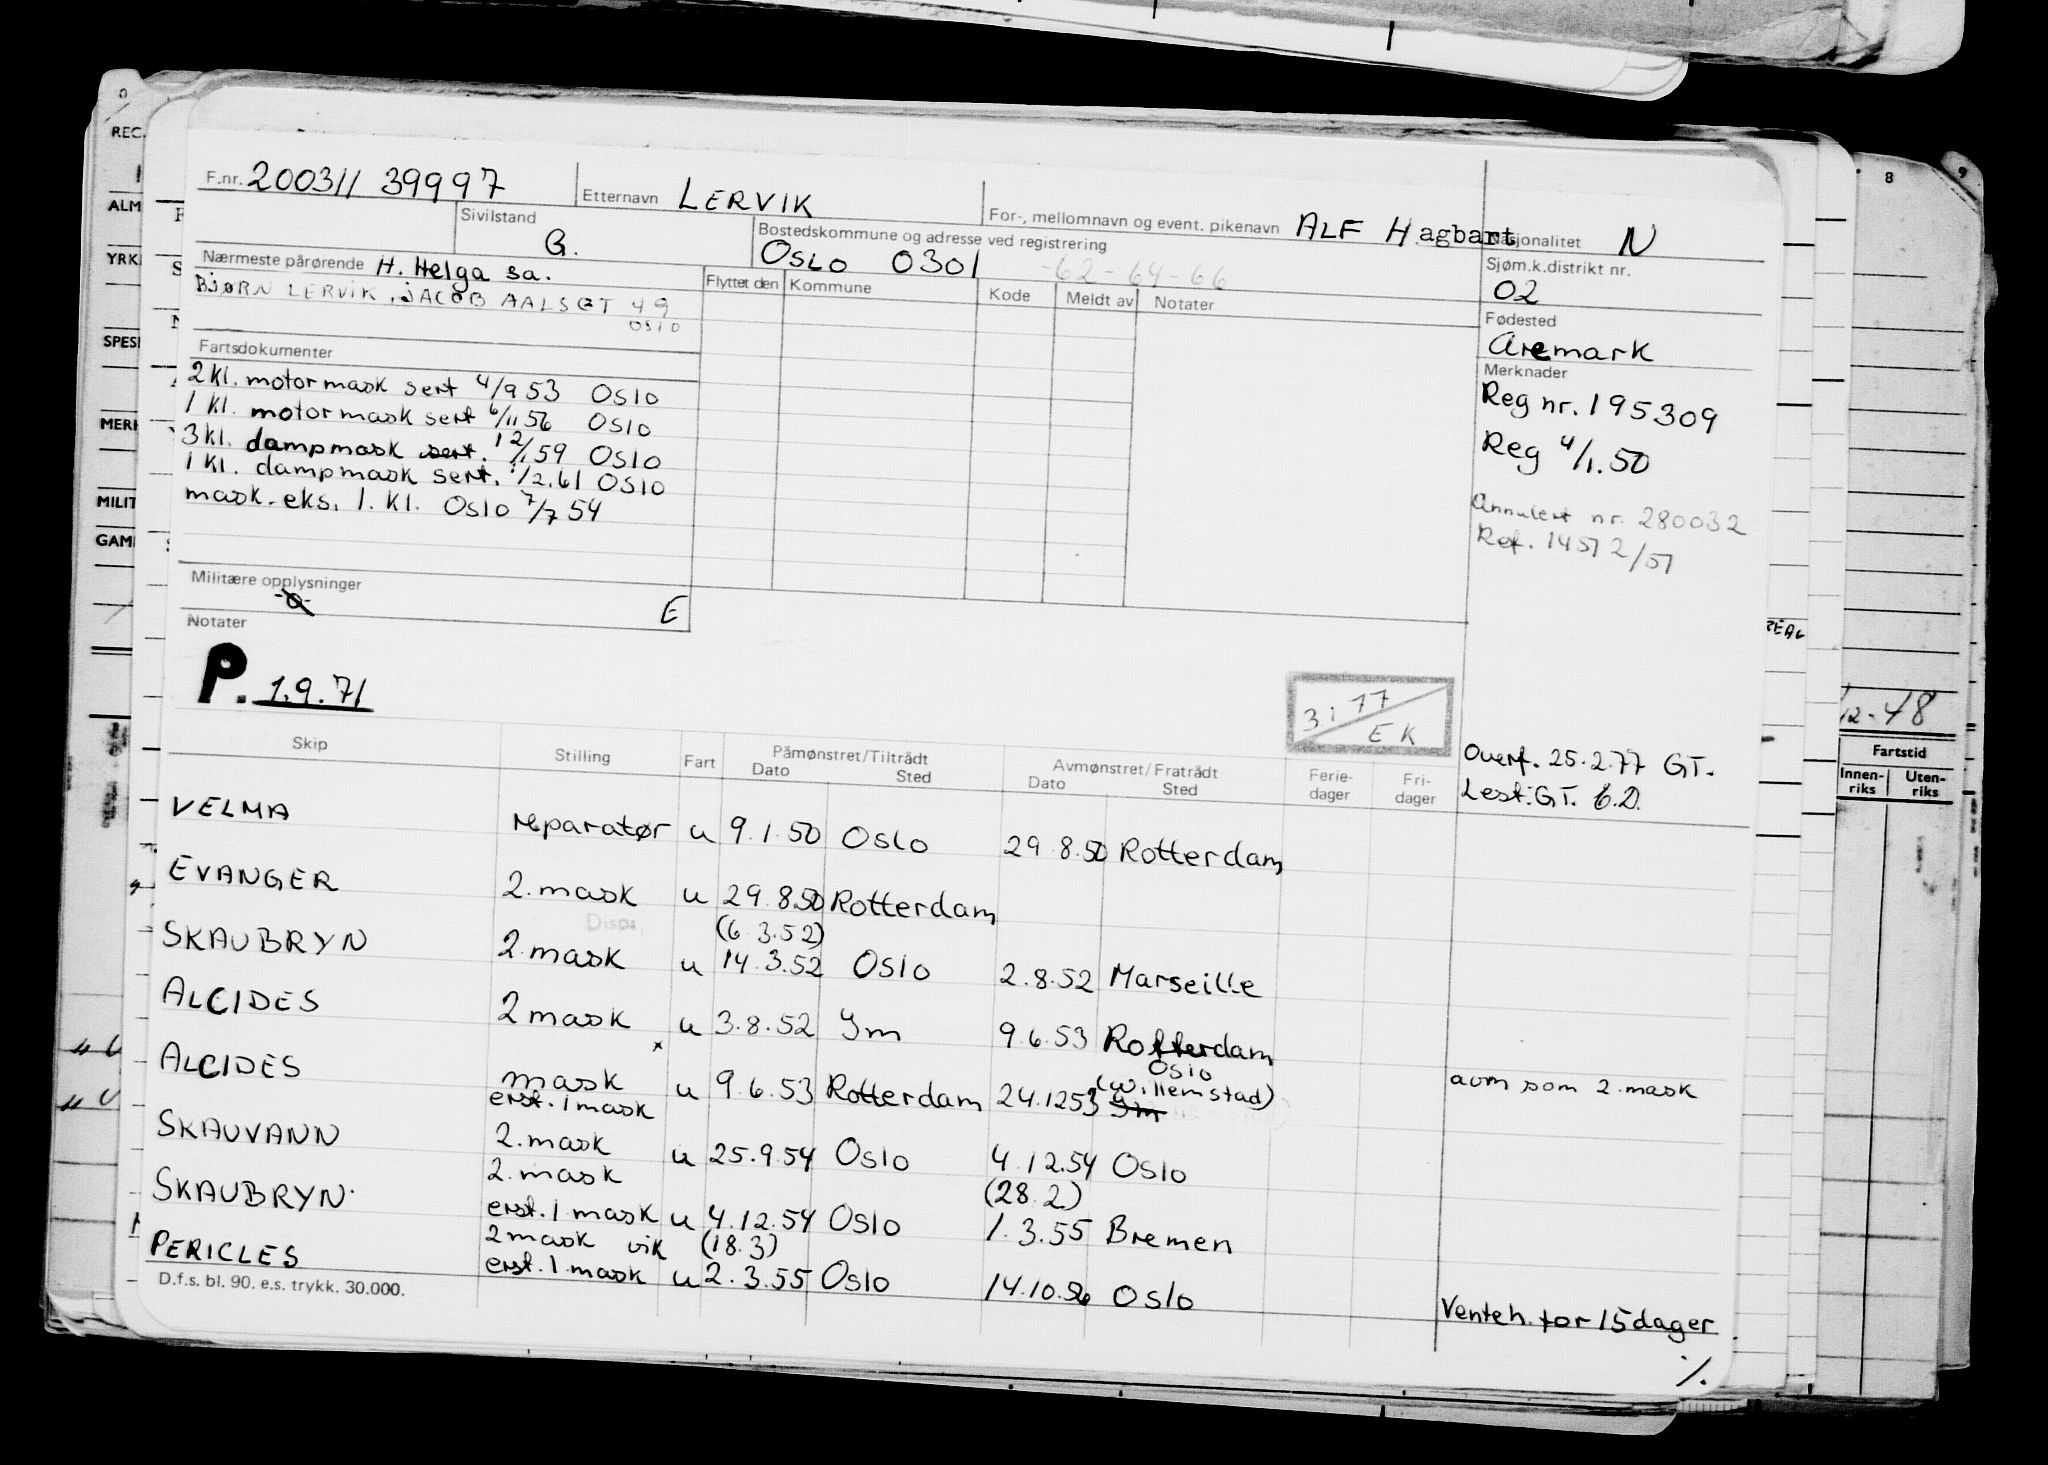 F.nr. 200311 39997 Etternavn LERVIK For-, mellomnavn og event. pikenavn ALF Hagbart Nasjonalitet N
Sivilstand G. Bostedskommune og adresse ved registrering OSLO 0301 -62-64-66
Sjøm.k.distrikt nr. 02
Nærmeste pårørende H. Helga sa.
BJØRN LERVIK, JACOB AALSGT 49
OSLO
Flyttet den Kommune Kode Meldt av Notater
Fødested
Aremark
Fartsdokumenter
2 Kl. motormask sert 4/9 53 Oslo
1 Kl. motormask sert 6/11 56 Oslo
3 kl. dampmask sert. 12/1 59 Oslo
1 Kl. dampmask sert. 1/2.61 Oslo
mask.eks. 1. Kl. Oslo 7/7 54
Merknader
Reg nr. 195309
Reg 4/1.50
Annulert nr. 280032
Ref. 14572/57
Militære opplysninger
-0- E
Notater
P. 1.9.71
3.1 77
E K
Overf. 25.2.77 GT.
Lest: GT. B.D.
Skip Stilling Fart Påmønstret/Tiltrådt Dato Sted Avmønstret/Fratrådt Dato Sted Ferie-dager Fri-dager
VELMA reparatør u 9.1.50 Oslo 29.8.50 Rotterdam
EVANGER 2.mask u 29.8.50 Rotterdam
Disp.
(6.3.52)
SKAUBRYN 2.mask u 14.3.52 Oslo 2.8.52 Marseille
ALCIDES 2 mask u 3.8.52 Ym 9.6.53 Rotterdam
Oslo
ALCIDES mask u 9.6.53 Rotterdam 24.12 53 (Willemstad) Ym avm som 2.mask
erst. 1 mask
SKAUVANN 2.mask u 25.9.54 Oslo 4.12.54 Oslo
2.mask
(28.2)
SKAUBRYN erst. 1 mask u 4.12.54 Oslo 1.3.55 Bremen
2 mask vik (18.3)
PERICLES erst. 1.mask u 2.3.55 Oslo 14.10.56 Oslo Venteh. for 15 dager
D.f.s. bl. 90. e.s. trykk. 30.000.
./.
REC.
ALM
YRK
SPES
MERK
MILIT
GAM
8
9
12-48
Fartstid
Innen-riks Uten-riks